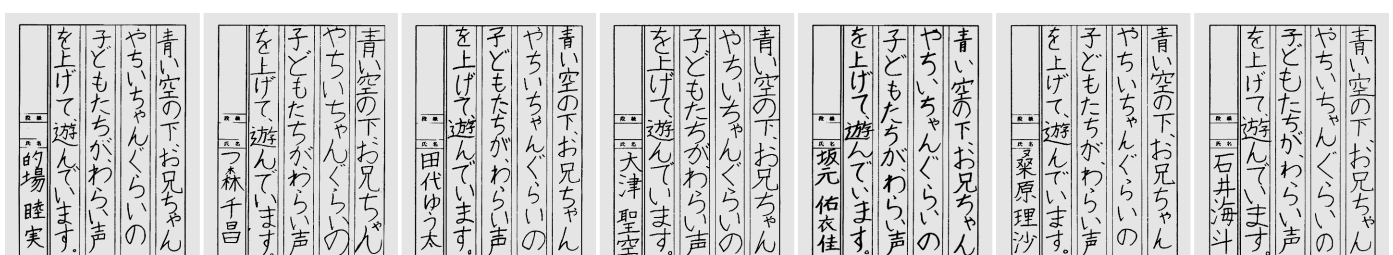 青い空の下、お兄ちゃん
やちいちゃんぐらいの
子どもたちが、わらい声
を上げて、遊んでいます。
段級
氏名
的場 睦実
青い空の下、お兄ちゃん
やちいちゃんぐらいの
子どもたちが、わらい声
を上げて、遊んでいます。
段級
氏名
森 千昌
青い空の下、お兄ちゃん
やちいちゃんぐらいの
子どもたちが、わらい声
を上げて、遊んでいます。
段級
氏名
田代ゆう太
青い空の下、お兄ちゃん
やちいちゃんぐらいの
子どもたちが、わらい声
を上げて、遊んでいます。
段級
氏名
大津 聖空
青い空の下、お兄ちゃん
やちいちゃんぐらいの
子どもたちが、わらい声
を上げて、遊んでいます。
段級
氏名
坂元 佑衣佳
青い空の下、お兄ちゃん
やちいちゃんぐらいの
子どもたちが、わらい声
を上げて、遊んでいます。
段級
氏名
桑原理沙
青い空の下、お兄ちゃん
やちいちゃんぐらいの
子どもたちが、わらい声
を上げて、遊んでいます。
段級
氏名
石井海斗